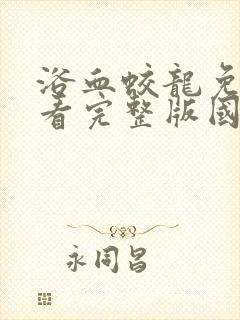 浴血蛟龍免
看完整版國
永同昌